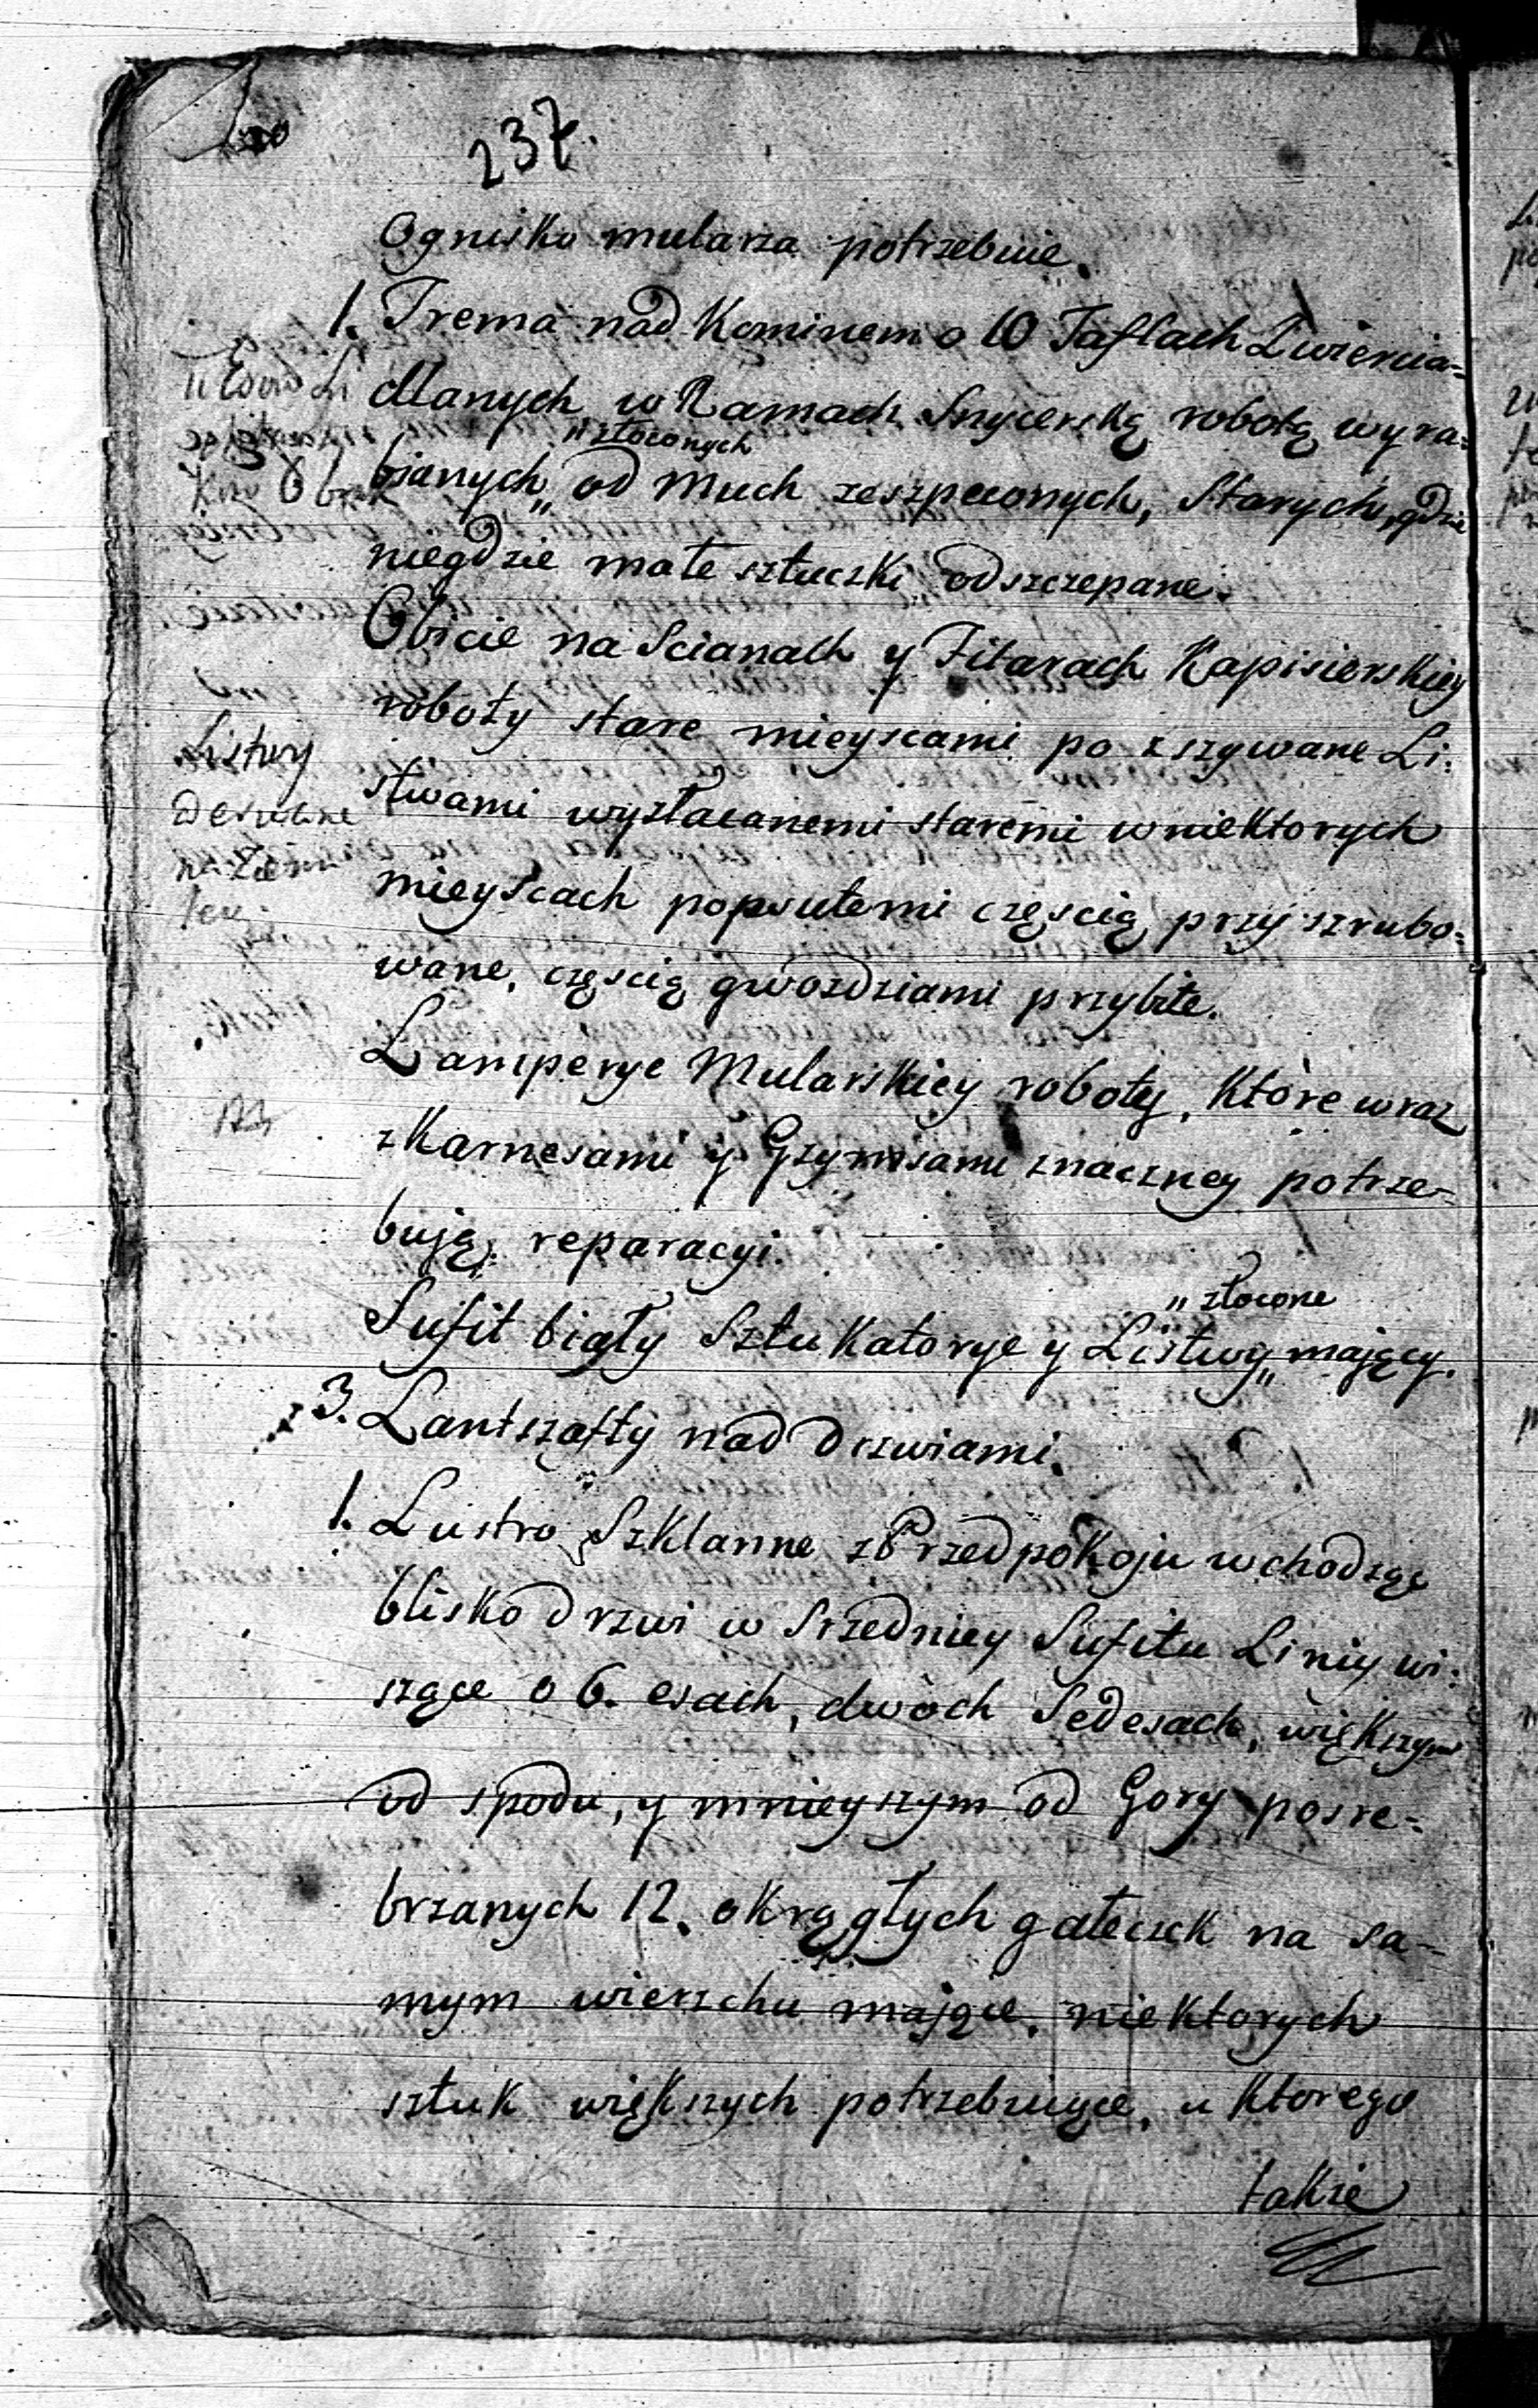 237.
Ognisko mularza potrzebuie.
1. Trema nad Kominem o 10 Taflach Zwiercia=
dlanych w Ramach Snycerską robotą wyra=
"złoconych
bianych„ od Much zeszpeconych, Starych, gdzie
niegdzie małe sztuczki odszczepane.
Obicie na Scianach y Filarach Kapisierskiey
roboty stare mieyscami po zszywane Li:
stwami wyzłacanemi staremi w niektorych
Listwy
mieyscach popsutemi częscią przy szrubo=
wane, częscią gwozdziami przybite.
Lamperye Mularskiey roboty, Które wraz
z Karnesami y Gzymsami znaczney potrze=
bują reparacyi.
"złocone
Sufit biały Sztukatorye y Listwy„ maiący.
3. Lantszafty nad drzwiami.
1. Lustro Szklanne z Przedpokoju wchodząc
blisko drzwi w Srzedniey Sufitu Linij wi:
szące o 6. esach, dwòch Sedesach, większym
od spodu, y mnieyszym od Gory posre=
brzanych 12. okrągłych gałeczek na sa=
mym wierzchu mające, niektorych
sztuk większych potrzebuiące, u ktorego
także